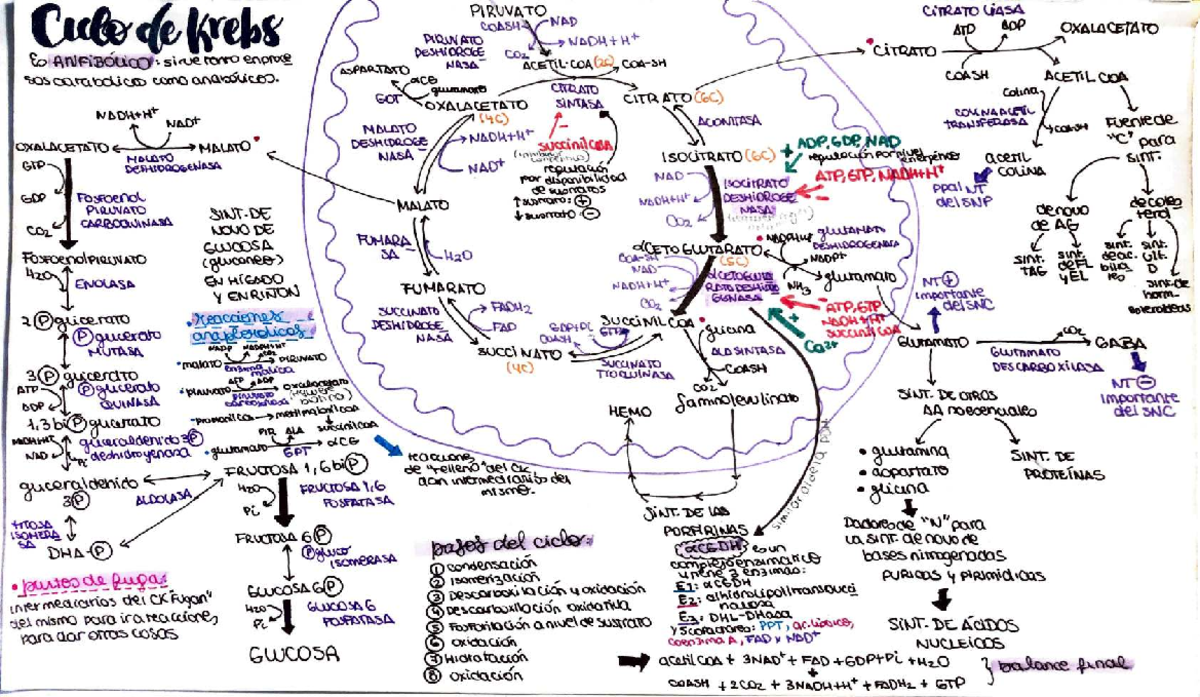 Ciclo de Krebs
Es ANFIBÓLICO: sirve tanto en proce
sos catabólicos como anabólicos.
NADH+H⁺
NAD⁺
OXALACETATO
MALATO
MALATO
DESHIDROGENASA
GTP
GDP
CO₂
FOSFOENOL
PIRUVATO
CARBOQUINASA
FOSFOENOLPIRUVATO
H₂O
ENOLASA
2 P glicerato
P glicerato
MUTASA
3 P glicerato
ATP
ADP
P glicerato
QUINASA
1,3 bi P glicerato
NADH+H⁺
NAD
Pi
gliceraldehido 3P
deshidrogenasa
gliceraldehido
3 P
ALDOLASA
TRIOSA
ISOMERA
SA
DHA-P
SINT. DE
NOVO DE
GLUCOSA
(gluconeo)
EN HÍGADO
Y EN RIÑON
reacciones
anapleróticas
malato
PIRUVATO
enzima
málica
piruvato
ATP
ADP
Oxalacetato
piruvato
carboxilasa
metilmalonilcoa
succinilcoa
PIR
ALA
glutamato
αCG
GPT
reacciones
de "relleno" del CK
con intermediarios del
mismo.
FRUCTOSA 1,6 bi P
H₂O
Pi
FRUCTOSA 1,6
FOSFATASA
FRUCTOSA 6 P
P gluco
ISOMERASA
GLUCOSA 6 P
H₂O
Pi
GLUCOSA 6
FOSFATASA
GLUCOSA
puntos de fuga:
intermediarios del CK "Fugan"
del mismo para ir a reacciones
para dar otras cosas
PIRUVATO
COASH
NAD
CO₂
NADH+H⁺
PIRUVATO
DESHIDROGE
NASA
ACETIL-COA (2C)
COA-SH
ASPARTATO
αCG
glutamato
GOT
OXALACETATO
(4C)
CITRATO
SINTASA
CITRATO (6C)
succinilCOA
(inhibidor
competitivo)
regulación
por disponibilidad
de sustratos
↑ sustrato: +
↓ sustrato: -
MALATO
DESHIDROGE
NASA
NADH+H⁺
NAD⁺
MALATO
FUMARA
SA
H₂O
FUMARATO
SUCCINATO
DESHIDROGE
NASA
FADH₂
FAD
SUCCINATO
(4C)
GDP+Pi
GTP
COASH
SUCCINATO
TIOQUINASA
SUCCINIL COA
ACONITASA
ISOCITRATO (6C)
NAD
NADH+H⁺
CO₂
ISOCITRATO
DESHIDROGE
NASA
+ ADP, GDP, NAD
regulación por nivel
energético
ATP, GTP, NADH+H⁺
αCETOGLUTARATO
(5C)
COA-SH
NAD
NADH+H⁺
CO₂
αCETOGLUTA
RATO DESHIDRO
GENASA
NADPH+H⁺
glutamato
DESHIDROGENASA
NADP⁺
NH₃
glutamato
ATP, GTP
NADH+H⁺
succinilCOA
+
Ca²⁺
glicina
ALA SINTASA
COASH
CO₂
δ aminolevulinato
HEMO
SINT. DE LAS
PORFIRINAS
similar a la PDH
αCGDH es un
complejo enzimático
y tiene 3 enzimas:
E1: αCGDH
E3: DHL-DHasa
y 5 cofactores: PPT, ac. lipoico,
coenzima A, FAD y NAD⁺
pasos del ciclo:
1 condensación
2 isomerización
3 Descarboxilación y oxidación
4 Descarboxilación oxidativa
5 Fosforilación a nivel de sustrato
6 oxidación
7 Hidratación
8 oxidación
acetilCOA + 3NAD⁺ + FAD + GDP+Pi + H₂O
COASH + 2CO₂ + 3NADH+H⁺ + FADH₂ + GTP
balance final
CITRATO LIASA
ATP
ADP
CITRATO
OXALACETATO
COASH
ACETIL COA
Colina
COLINA ACETIL
TRANSFERASA
COASH
acetil
COLINA
ppal NT
del SNP
Fuente de
"C" para
SINT.
de novo
de AG
de coles
terol
SINT.
TAG
SINT.
de FL
y EL
sint.
de ac.
bilia
res
sint.
vit.
D
sint. de
horm.
esteroideas
NT +
importante
del SNC
GLUTAMATO
CO₂
GABA
GLUTAMATO
DESCARBOXILASA
NT -
importante
del SNC
SINT. DE OTROS
AA no esenciales
SINT. DE
PROTEÍNAS
glutamina
aspartato
glicina
Dadores de "N" para
la sint. de novo de
bases nitrogenadas
PURICAS y PIRIMÍDICAS
SINT. DE ÁCIDOS
NUCLEICOS